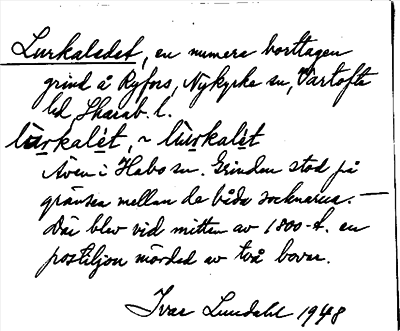 Lurkaledet, en numera borttagen
grind å Ryfors, Nykyrke sn, Vartofta
hd Skarab. l.
lu̇rkalèt, ~ lu̇rkalét
Även i Habo sn. Grinden stod på
gränsen mellan de båda socknarna. —
Där blev vid mitten av 1800-t. en
postiljon mördad av två bovar.
Ivar Lundahl 1948